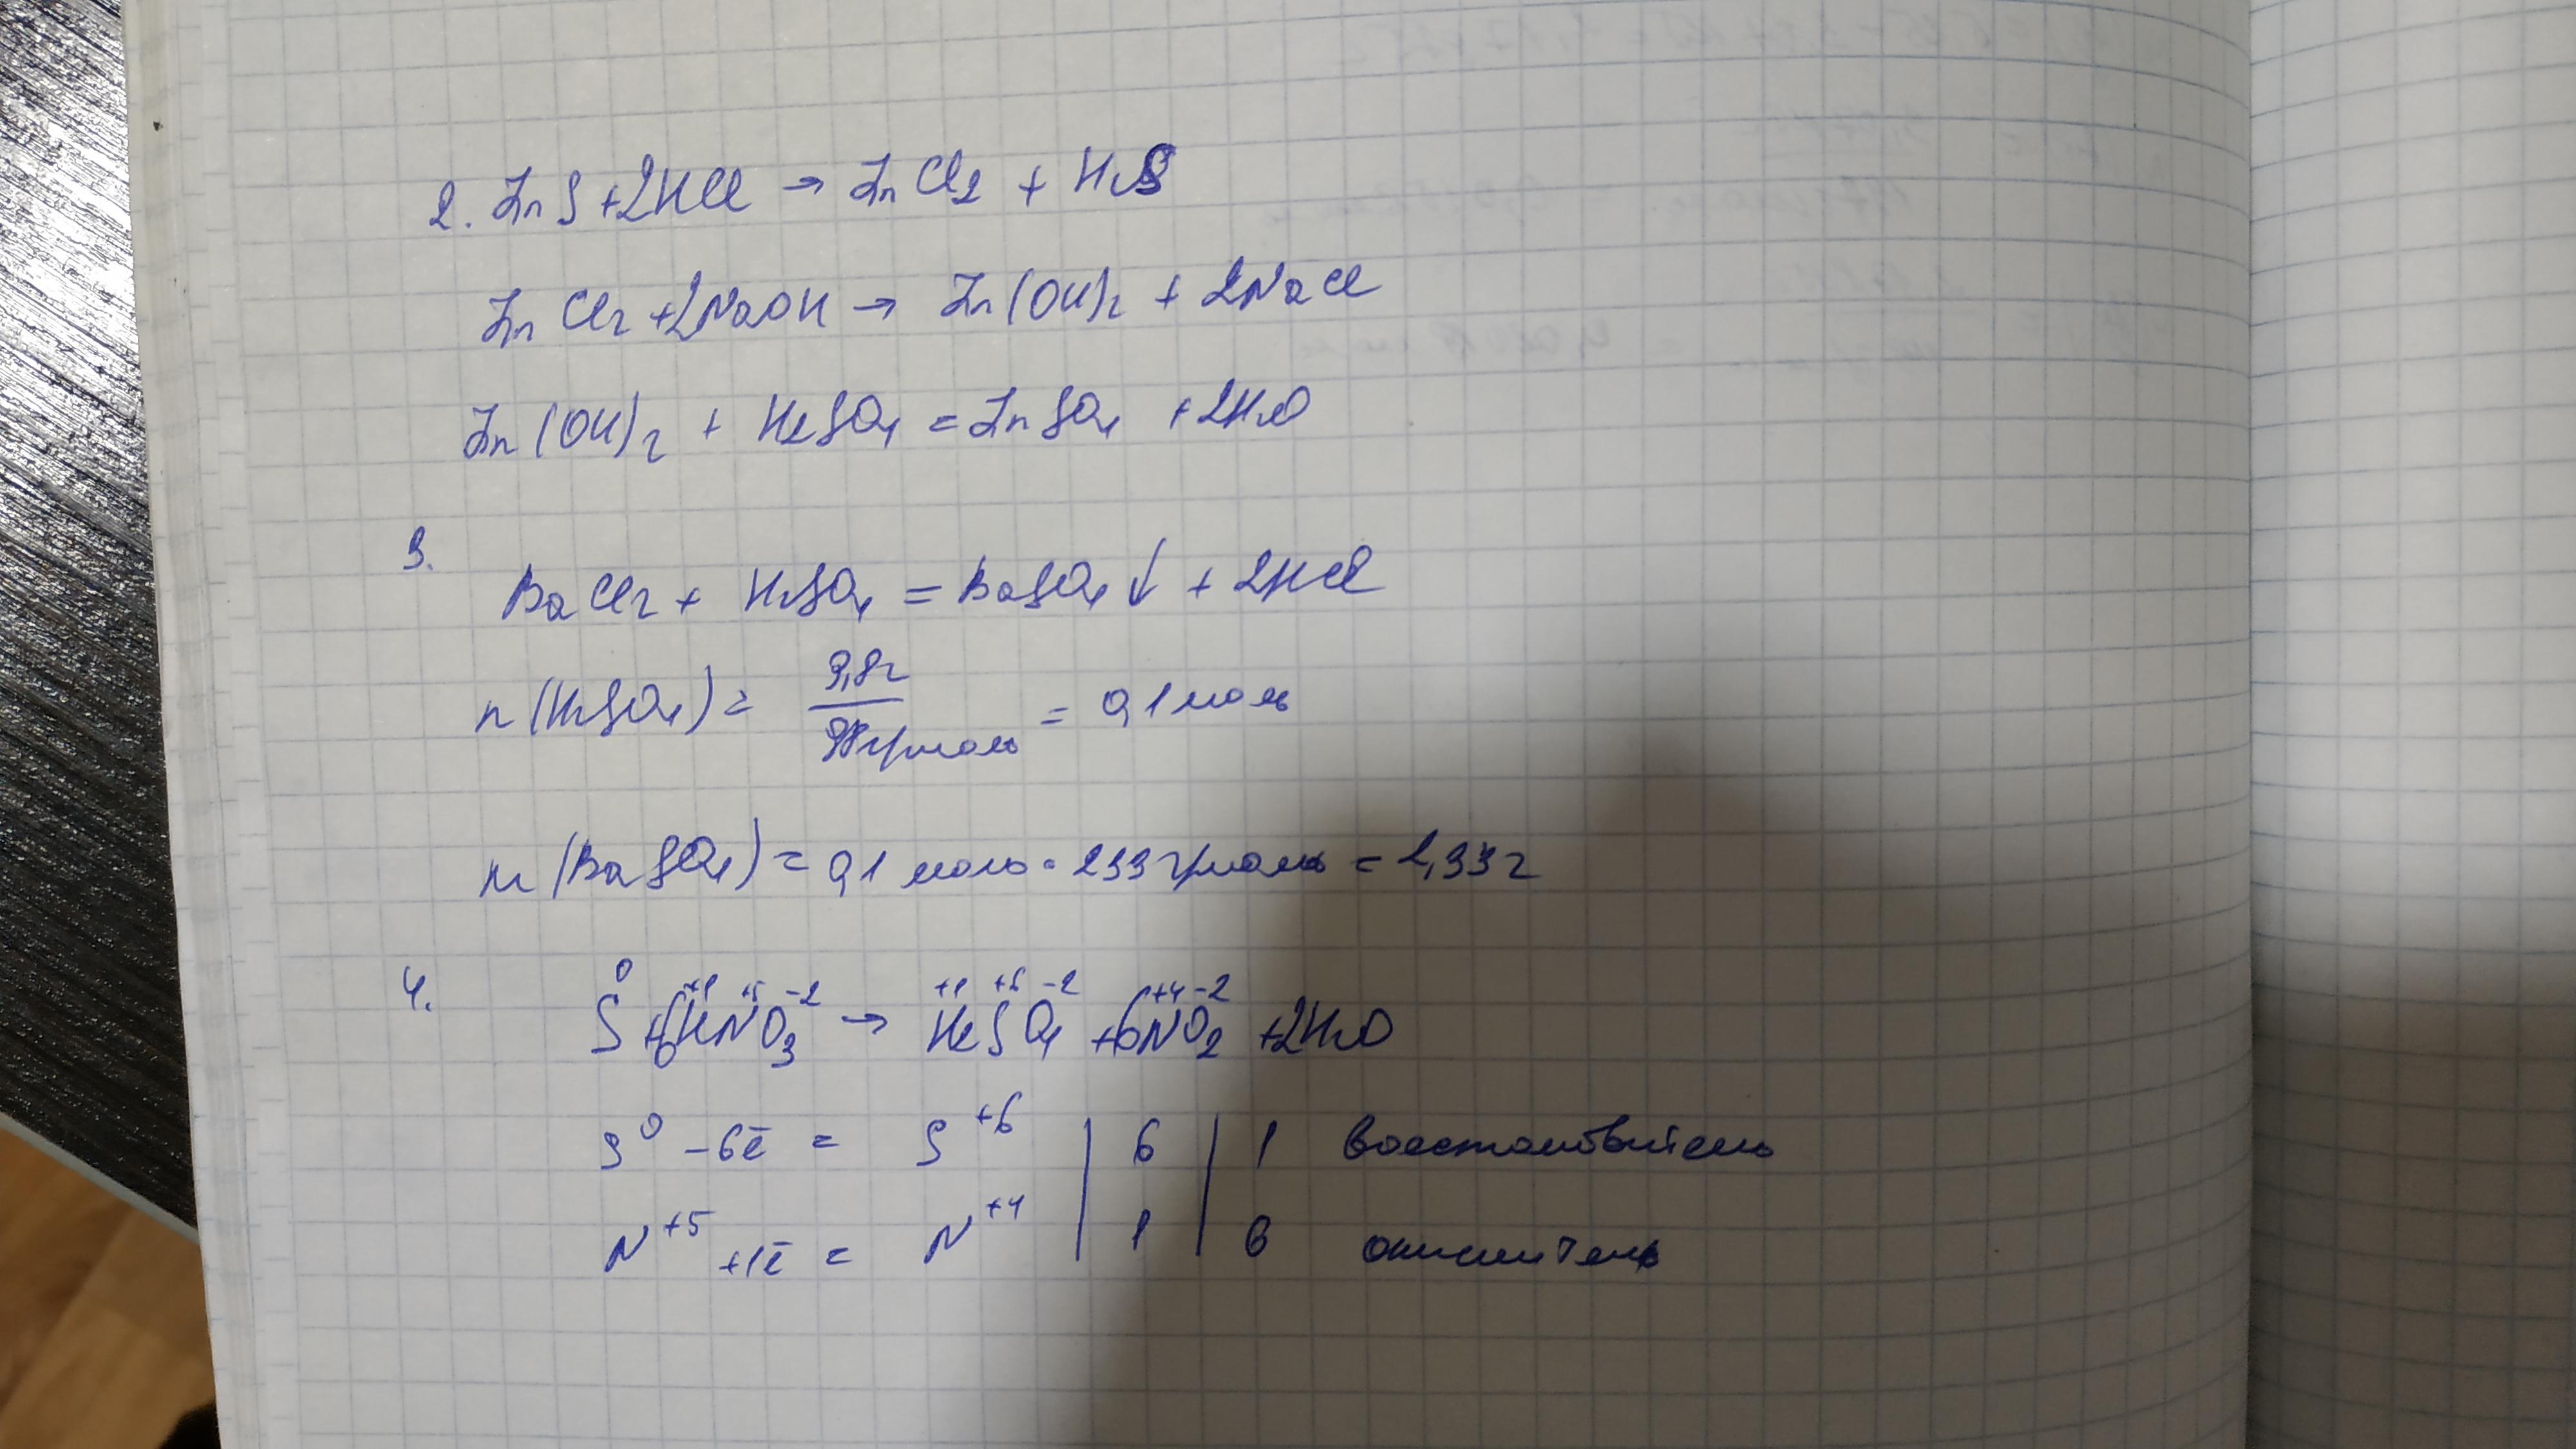 2. ZnS + 2HCl → ZnCl₂ + H₂S
ZnCl₂ + 2NaOH → Zn(OH)₂ + 2NaCl
Zn(OH)₂ + H₂SO₄ = ZnSO₄ + 2H₂O
3.
BaCl₂ + H₂SO₄ = BaSO₄↓ + 2HCl
n(H₂SO₄) = 9,8г / 98г/моль = 0,1 моль
m(BaSO₄) = 0,1 моль · 233 г/моль = 2,33 г
4. S⁰ + 6H⁺¹N⁺⁵O₃⁻² → H₂⁺¹S⁺⁶O₄⁻² + 6N⁺⁴O₂⁻² + 2H₂O
S⁰ - 6ē = S⁺⁶ | 6 | 1 восстановитель
N⁺⁵ + 1ē = N⁺⁴ | 1 | 6 окислитель